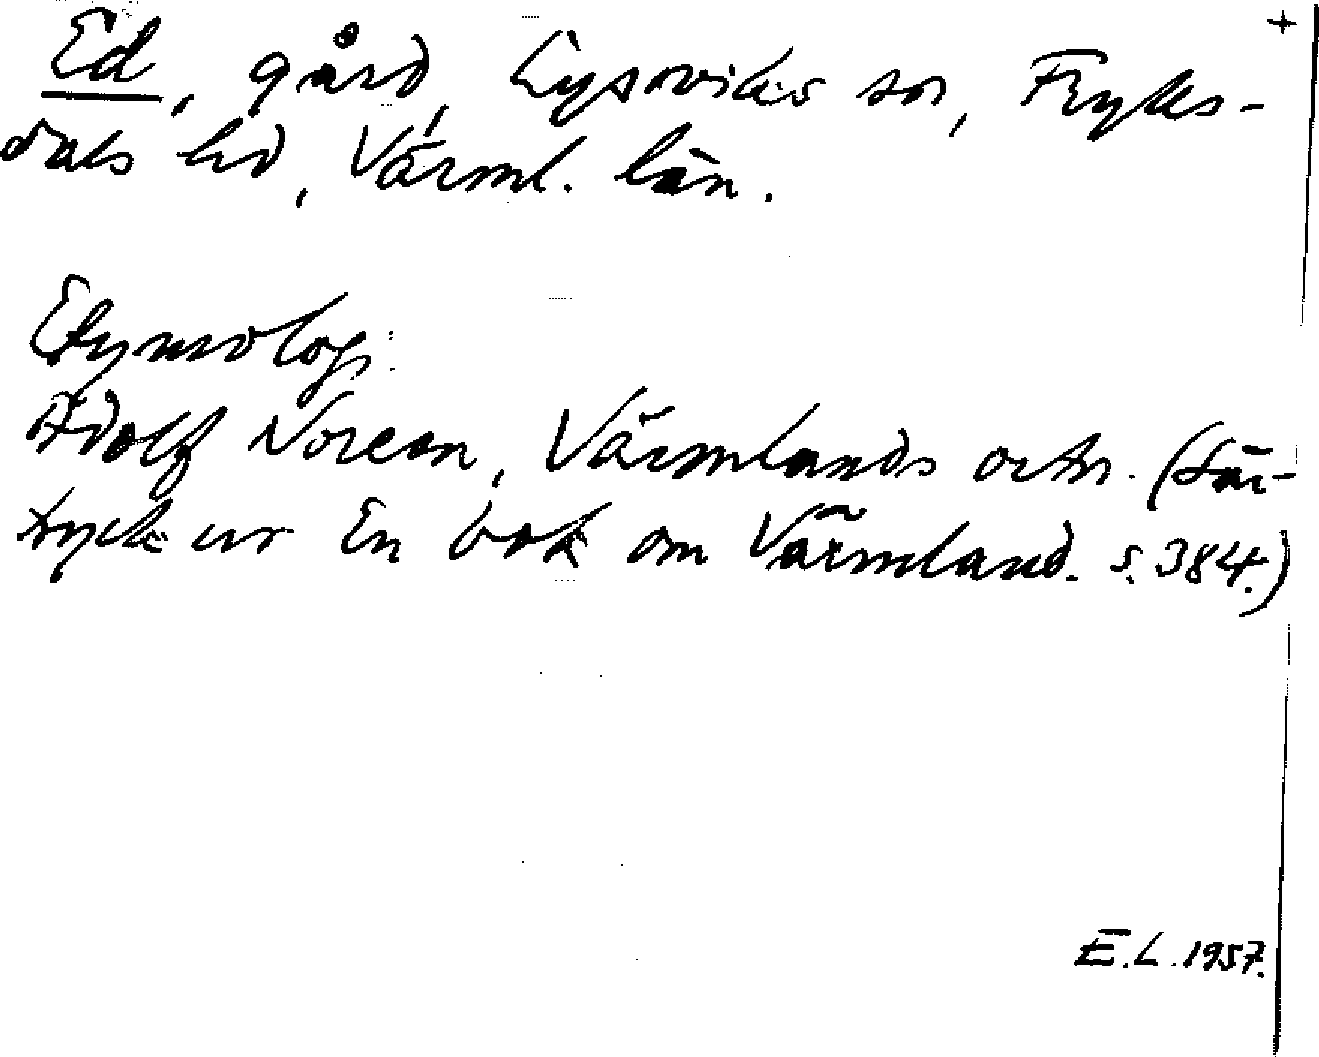 +
Ed, gård, Lysviks sn, Fryks-
dals hd, Värml. län.
Etymologi:
Adolf Noreen, Värmlands ortn. (Sär-
tryck ur En bok om Värmland. s. 384.)
E.L. 1957.